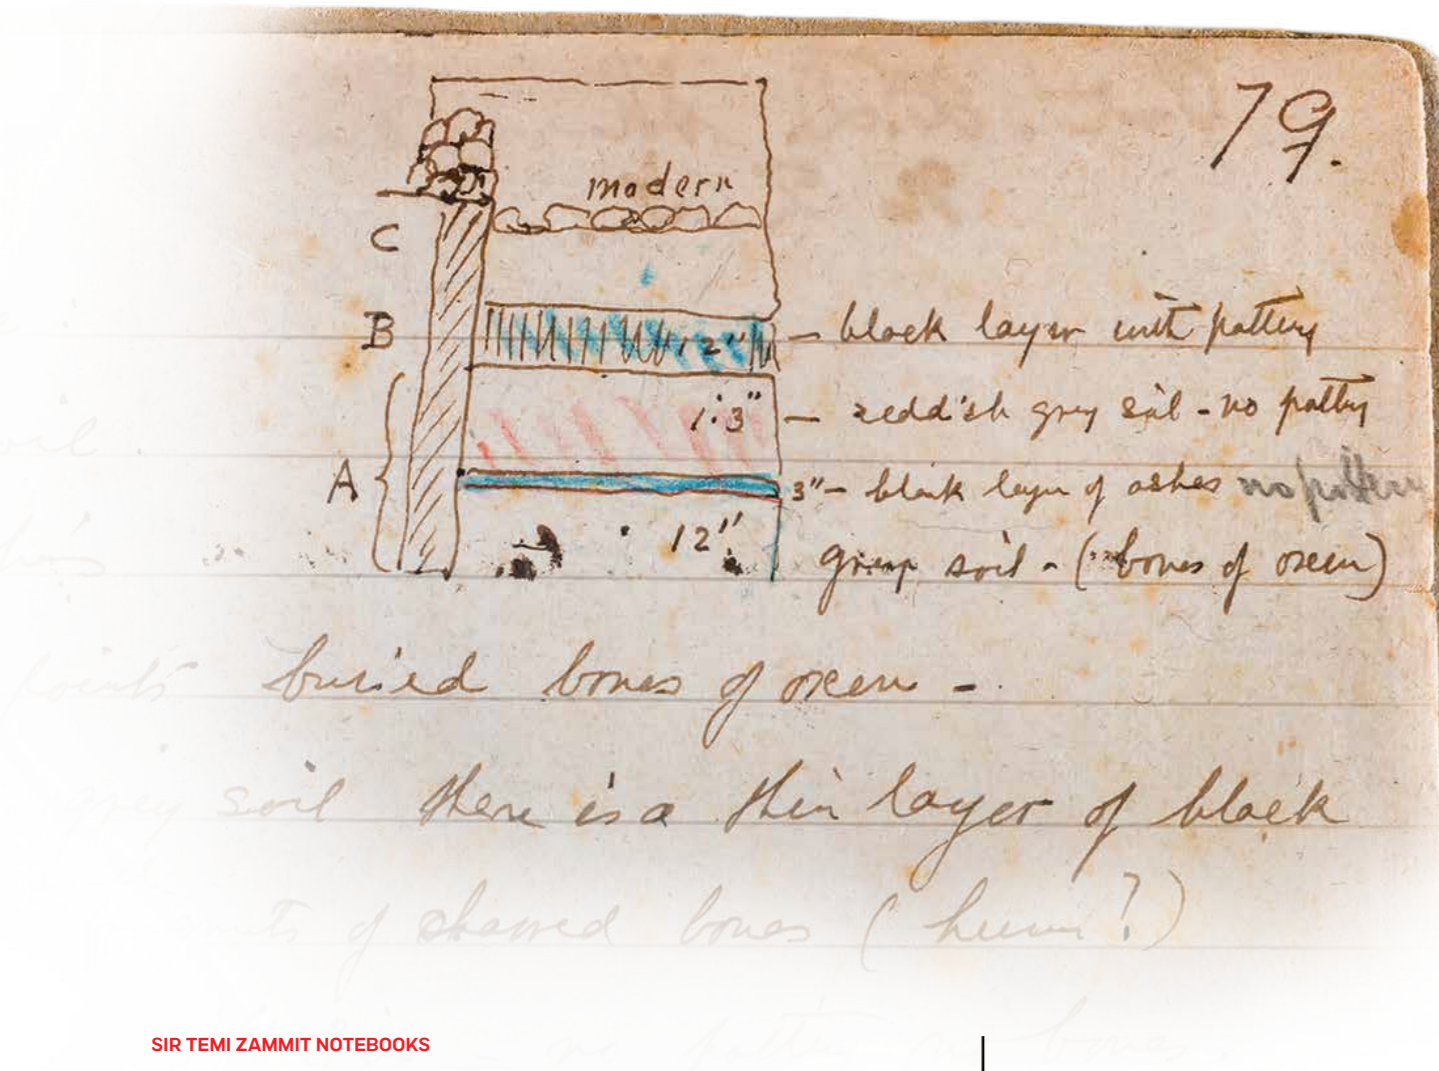 79.
modern
C
B
2" — black layer with pottery
1.3" — reddish grey soil - no pottery
A
3" — black layer of ashes no pottery
12" grey soil - (bones of oxen)
points buried bones of oxen -
grey soil there is a thin layer of black
of charred bones (hum?)
- no pottery bones
SIR TEMI ZAMMIT NOTEBOOKS